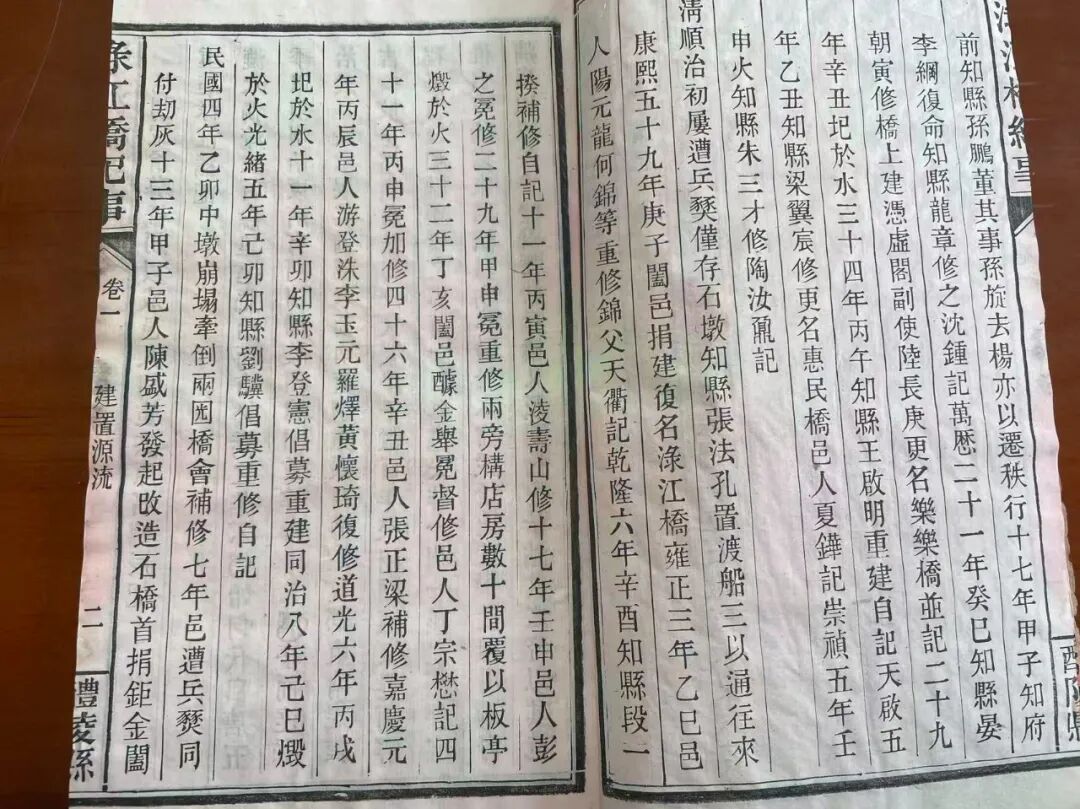 前知縣孫鵬董其事孫旋去楊亦以遷秩行十七年甲子知府
李綱復命知縣龍章修之沈鍾記萬厯二十一年癸巳知縣晏
朝寅修橋上建憑虛閣副使陸長庚更名樂樂橋並記二十九
年辛丑圮於水三十四年丙午知縣王啟明重建自記天啟五
年乙丑知縣梁翼宸修更名惠民橋邑人夏鏵記崇禎五年壬
申火知縣朱三才修陶汝鼐記
淸順治初屢遭兵燹僅存石墩知縣張法孔置渡船三以通往來
康熙五十九年庚子闔邑捐建復名淥江橋雍正三年乙巳邑
人陽元龍何錦等重修錦父天衢記乾隆六年辛酉知縣段一
揆補修自記十一年丙寅邑人淩壽山修十七年壬申邑人彭
之冕修二十九年甲申冕重修兩旁構店房數十間覆以板亭
燬於火三十二年丁亥闔邑醵金舉冕督修邑人丁宗懋記四
十一年丙申冕加修四十六年辛丑邑人張正梁補修嘉慶元
年丙辰邑人游登洙李玉元羅燡黃懷琦復修道光六年丙戌
圯於水十一年辛卯知縣李登憲倡募重建同治八年己巳燬
於火光緒五年己卯知縣劉驥倡募重修自記
民國四年乙卯中墩崩塌牽倒兩囤橋會補修七年邑遭兵燹同
付劫灰十三年甲子邑人陳盛芳發起改造石橋首捐鉅金闔
淥江橋記事
卷一
建置源流
二
醴陵縣